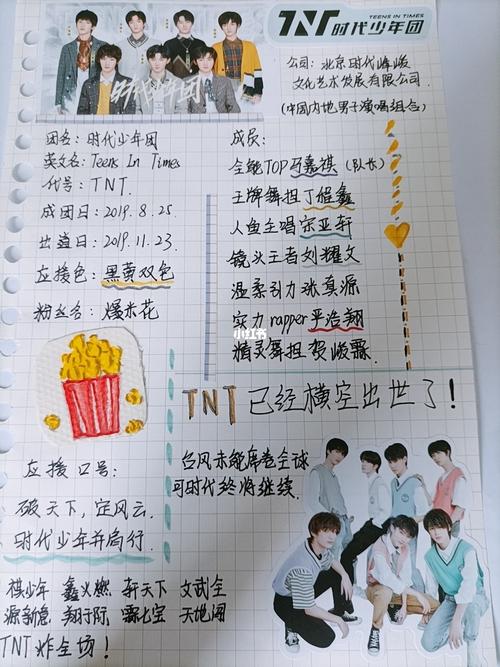 时代少年团
TNT
TEENS IN TIMES
时代少年团
公司：北京时代峰峻
文化艺术发展有限公司
(中国内地男子演唱组合)
团名：时代少年团
英文名：Teens In Times
代号：TNT
成团日：2019.8.25
出道日：2019.11.23
应援色：黑黄双色
粉丝名：爆米花
成员：
全能TOP马嘉祺（队长）
王牌舞担丁程鑫
人鱼主唱宋亚轩
镜头王者刘耀文
温柔引力张真源
实力rapper严浩翔
精灵舞担贺峻霖
小红书
TNT已经横空出世了！
应援口号：
破天下，定风云，
时代少年并肩行
台风未能席卷全球
可时代终将继续
祺少年 鑫火燃 轩天下 文武全
源新意 翔于际 霖七宝 天地闯
TNT炸全场！